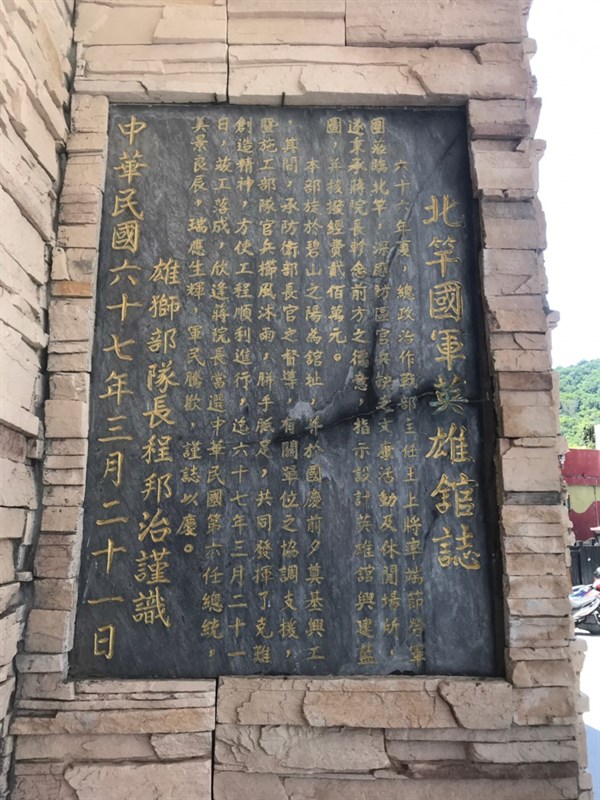 北竿國軍英雄館誌
六十六年夏，總政治作戰部主任王上將率端節勞軍
團蒞臨北竿，深感防區官兵缺乏文康活動及休閒場所，
遂秉承蔣院長軫念前方之德意，指示設計英雄舘興建藍
圖，并核撥經費貳佰萬元。
本部旋於碧山之陽為舘址，并於國慶前夕奠基興工
，其間，承防衛部長官之督導，有關單位之協調支援，
暨施工部隊官兵櫛風沐雨，胼手胝足，共同發揮了克難
創造精神，方使工程順利進行，迄六十七年三月二十一
日，竣工落成，欣逢蔣院長當選中華民國第六任總統，
美景良辰，瑞應生輝，軍民騰歡，謹誌以慶。
雄獅部隊長程邦治謹識
中華民國六十七年三月二十一日